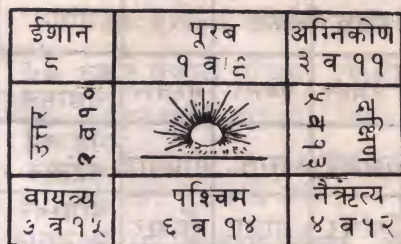 ईशान
८
पूरब
१ व ९
अग्निकोण
३ व ११
उत्तर
२ व १०
दक्षिण
५ व १३
वायव्य
७ व १५
पश्चिम
६ व १४
नैऋत्य
४ व १२